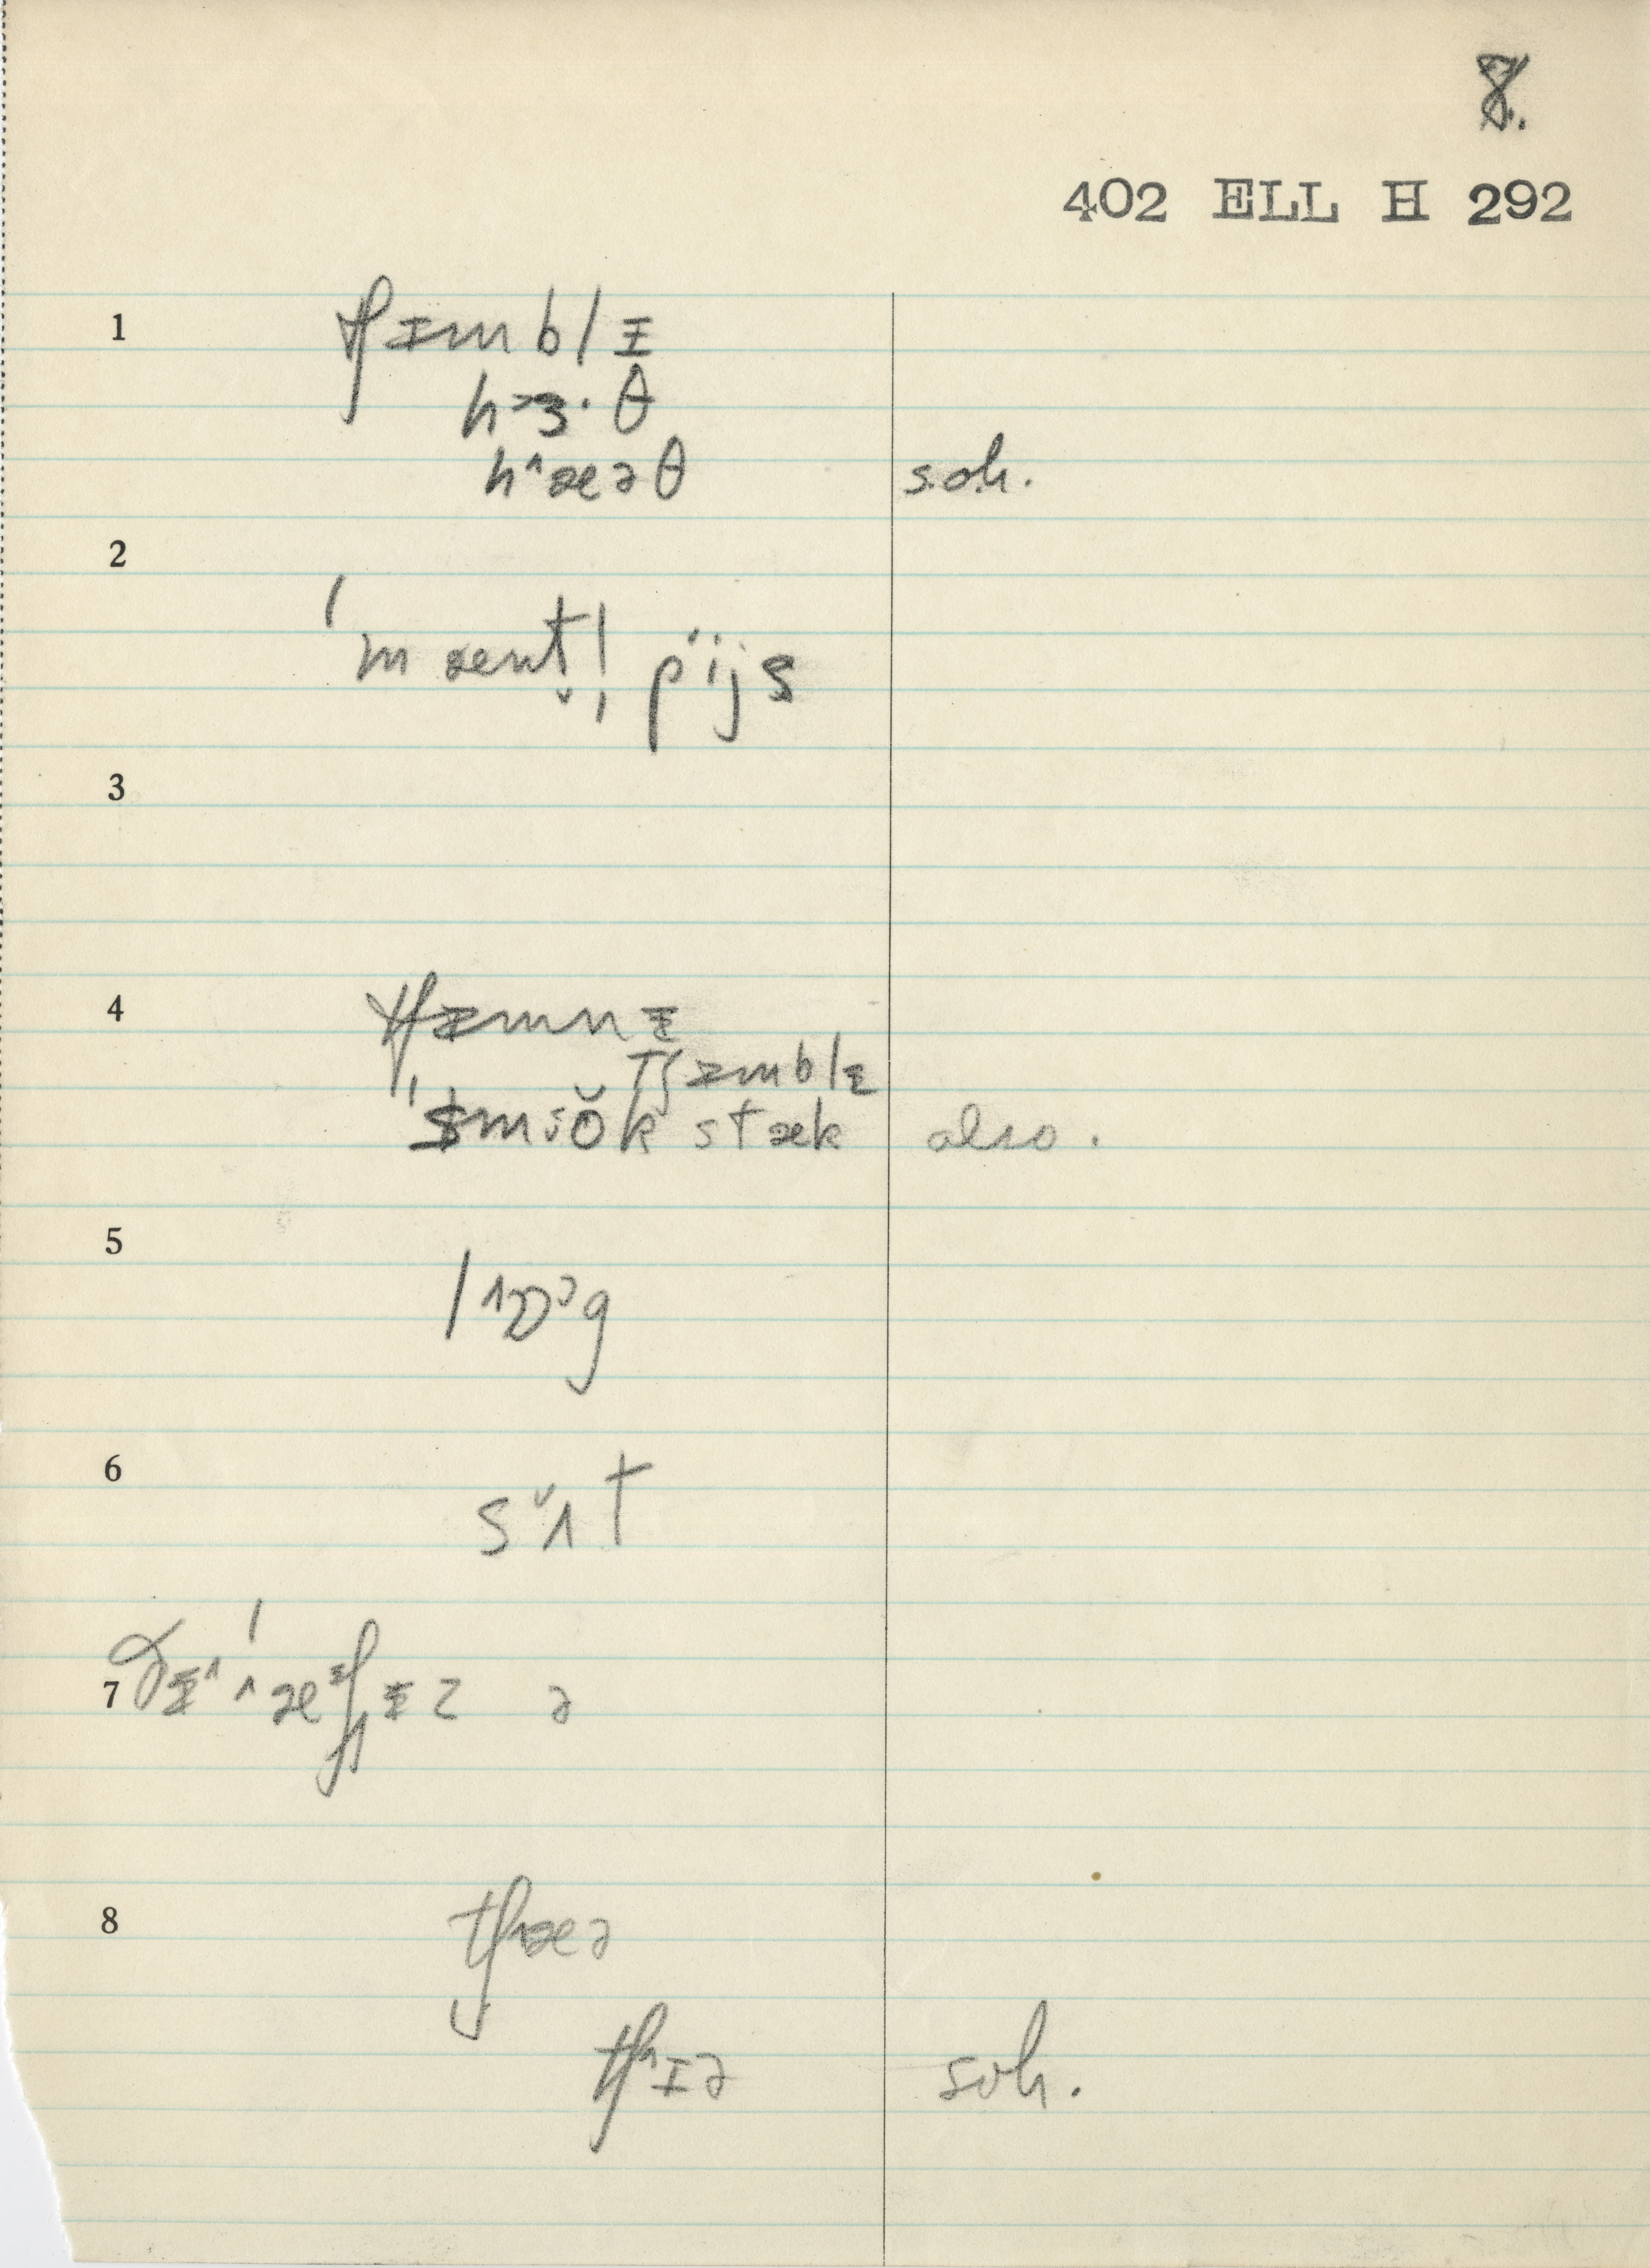 8.
402 ELL H 292
1 tʃɪmblɪ
hɜ·θ
h^æəθ s.o.h.
2
ˈmæntl̩ pïjs
3
4 tʃɪmnɪ
tʃɪmblɪ
ˈsmŏk stæk also.
5 lɒᵊg
6 sʌ̆t
7 æʃɪz ə
8 tʃæə
tʃɪə soh.